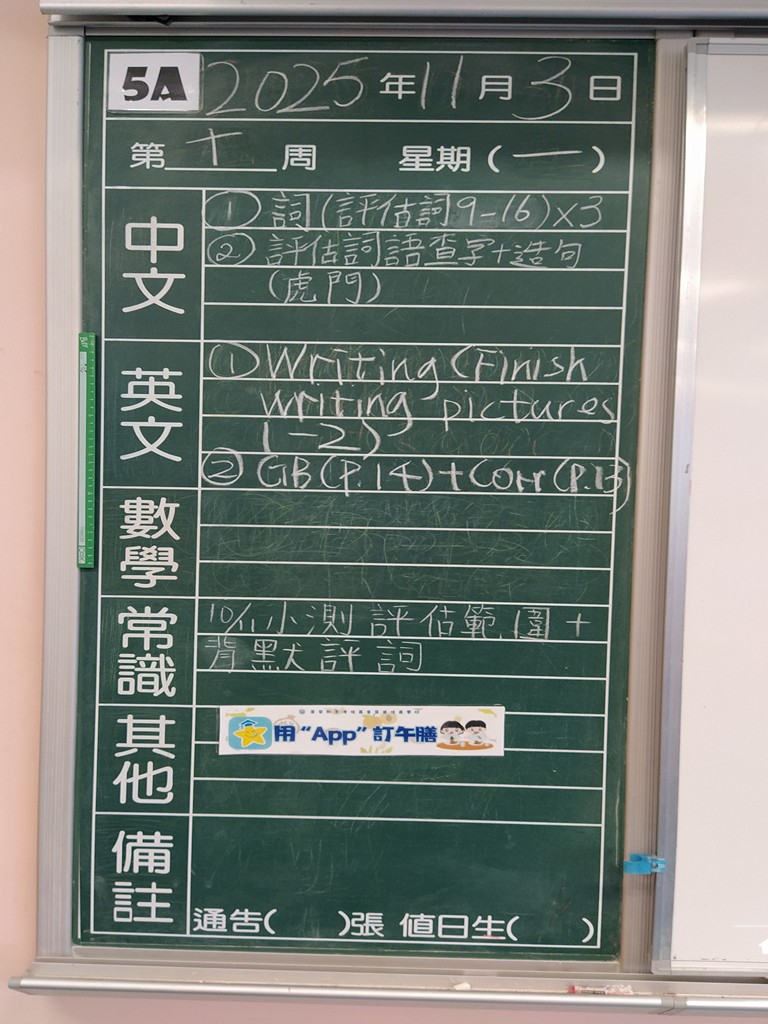 5A 2025年11月3日
第十周 星期(一)
中文
① 詞(評估詞9-16)×3
② 評估詞語查字+造句
(虎門)
英文
① Writing (Finish
writing pictures
1-2)
② GB(P.14)+Corr(P.13)
數學
常識
10/11小測評估範圍+
背默評詞
其他
用“App”訂午膳
備註
通告( )張 值日生( )